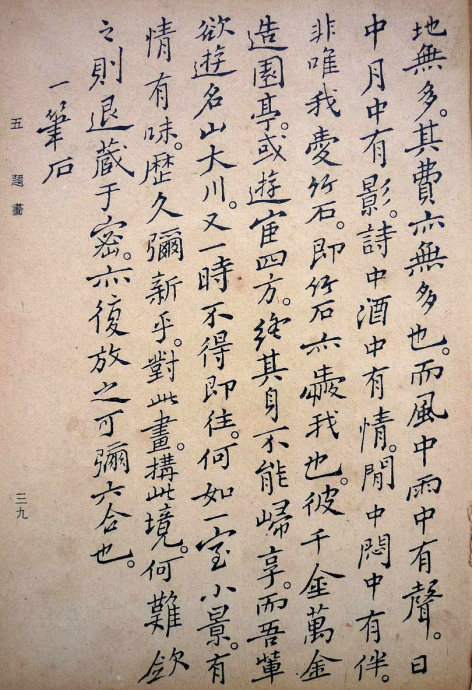 地無多。其費亦無多也。而風中雨中有聲。日
中月中有影。詩中酒中有情。閒中悶中有伴。
非唯我愛竹石。即竹石亦愛我也。彼千金萬金
造園亭。或遊宦四方。終其身不能歸享。而吾輩
欲遊名山大川。又一時不得即往。何如一室小景。有
情有味。歷久彌新乎。對此畫。搆此境。何難斂
之則退藏于密。亦復放之可彌六合也。
一筆石
五 題畫
三九